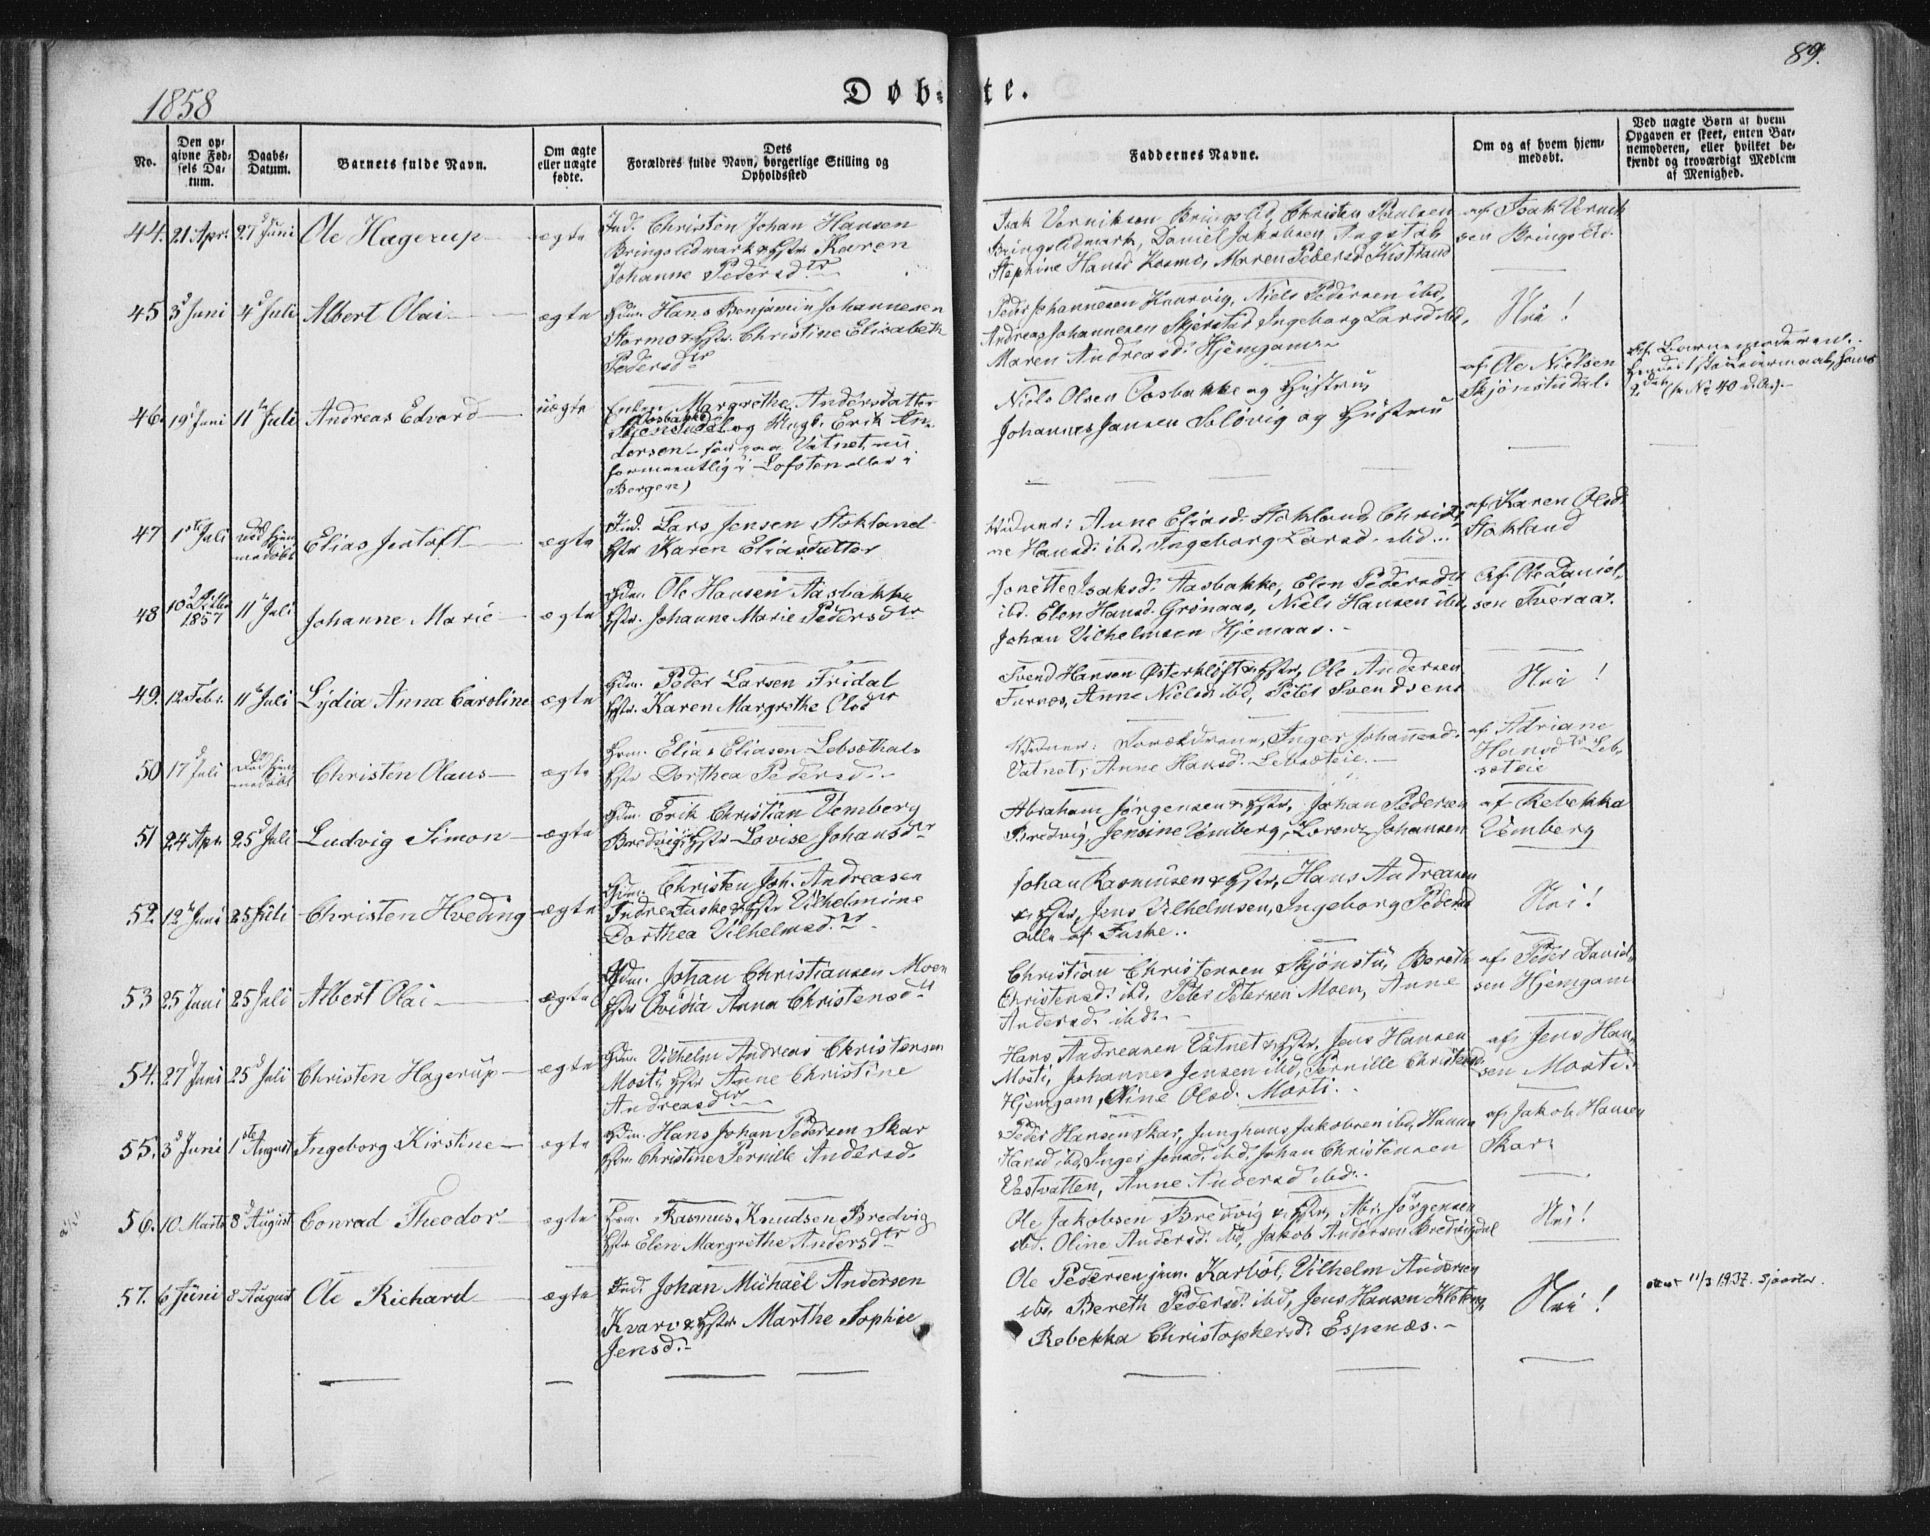 1858
Døb-te.
89.
No.
Den opgivne Fødsels Datum.
Daabs-Datum.
Barnets fulde Navn.
Om ægte eller uægte fødte.
Dets Forældres fulde Navn, borgerlige Stilling og Opholdssted
Faddernes Navne.
Om og af hvem hjemmedøbt.
Ved uægte Børn af hvem Opgaven er skeet, enten Barnemoderen, eller hvilket bekjendt og troværdigt Medlem af Menighed.
44. 21 Apr. 27d Juni Ole Hagerup ægte
Ind. Christen Johan Hansen
Bringslidmark & Hstr Karen
Johanne Pedersdtr
Isak Verniksen Bringslid, Christen Paulsen
Bringslidmark, Daniel Jakobsen
Stephine Hansd Kosmo, Maren Pedersd Kistrand
af Isak Vernik
sen Bringslid.
45 3d Juni 4d Juli Albert Olai ægte
Gdm. Hans Benjamin Johannesen
Stormo & Hstr. Christine Elisabeth
Pedersdtr
Peder Johannesen Kaarvig, Niels Pedersen ibd,
Andreas Johannesen Skjerstad Ingeborg Larsd ibd,
Maren Andreasd. Hjemgam
Nei!
46. 19d Juni 11te Juli Andreas Edvard uægte
Enke Margrethe Andersdatter
Skjønstudal og Ungk. Erik An-
dersen før paa Vatnet, nu
formeentlig i Lofoten eller i
Bergen)
Niels Olsen Oosbakke og Hustru
Johannes Jansen Soløvig og Hustru
af Ole Nielsen
Skjønstudal.
Af Barnemoderen.
Hendes 1ste Leiermaal, hans
2det (se No 40 )
47 1ste Juli Død hjem
medøbt Elias Jentoft ægte
Ind. Lars Jensen Stokland
Hstr Karen Eliasdatter
Vidner: Anne Eliasd. Stokland, Christi
ne Hansd. ibd, Ingeborg Larsd. ibd
af Karen Olsd
Stokland
48 10 1857 11te Juli Johanne Marie ægte
Gdm. Ole Hansen Aasbakke
Hstr. Johanne Marie Pedersdtr
Jonette Isaksd. Aasbakke, Elen Pedersdtr
ibd. Elen Hansd. Grønaas, Niels Hansen ibd,
Johan Vilhelmsen Hjemaas.
Af Ole Daniel-
sen Tveraa.
49. 12 Febr. 11te Juli Lydia Anna Caroline ægte
Gdm. Peder Larsen Fridal
Hstr. Karen Margrethe Olsdtr
Svend Hansen Østerkløft & Hstr, Ole Andersen
Furnes, Anne Nielsd ibd, Peter Svendsen
Nei!
50 17d Juli Død hjem
medøbt Christen Olaus ægte
Hm. Elias Eliasen
Hstr Dorthea Pedersd.
Vidner: Forældrene, Inger Johannesd.
Vatnet, Anne Hansd.
af Adriane
Hansdtr Leb
51 24 Apr. 25d Juli Ludvig Simon ægte
Gdm. Erik Christian Vemberg
Bredvig, Hstr Lovise Johansdtr
Abraham Jørgensen & Hstr, Johan Pedersen
Bredvig, Jensine Vemberg, Lorenz Johansen
af Rebekka
Vemberg
52. 12te Juni 25 Juli Christen Hveding ægte
Gdm. Christen Joh. Andreasen
Indre Fuske & Hstr Vilhelmine
Dorthea Vilhelmsd.
Johan Rasmusen & Hstr, Hans Andreasen
& Hstr, Jens Vilhelmsen, Ingeborg Pedersd
alle af Fuske
Nei!
53 25 Juni 25 Juli Albert Olai ægte
Gdm. Johan Christiansen Moen
Hstr Ovidia Anna Christensdtr
Christian Christensen Skjønstu, Bereth
Christensd. ibd, Peter Petersen Moen, Anne
Andersd. ibd.
af Peder David-
sen Hjemgam
54. 27d Juni 25d Juli Christen Hagerup ægte
Gdm. Vilhelm Andreas Christensen
Mosti, Hstr Anne Christine
Andreasdtr
Hans Andreasen Vatnet & Hstr, Jens Hansen
Mosti, Johannes Jensen ibd, Pernille Christensd.
Hjemgam, Oline Olsd. Mosti.
af Jens Han-
sen Mosti.
55. 3d Juni 1ste August Ingeborg Kirstine ægte
Gdm. Hans Johan Pedersen Skar
Hstr Christine Pernille Andersd.
Peder Hansen Skar, Junghans Jakobsen ibd, Hanna
Hansd ibd, Inger Jensd. ibd, Johan Christensen
Vestvatten, Anne Andersd ibd.
af Jakob Hansen
Skar
56. 10. Marts 8d August Conrad Theodor ægte
Hm. Rasmus Knudsen Bredvig
Hstr Elen Margrethe Andersdtr
Ole Jakobsen Bredvig & Hstr, Abr. Jørgensen
ibd. Oline Andersd. ibd, Jakob Andersen Bredvigdal
Nei!
57. 6 Juni 8 August Ole Richard ægte
Ind. Johan Michael Andersen
Kvarv & Hstr Marthe Sophie
Jensd.
Ole Pedersen jun. Karbøl, Vilhelm Andersen
ibd, Bereth Pedersd. ibd, Jens Hansen
Rebekka Christophersd. Espenes.
Nei!
11/3 1937.